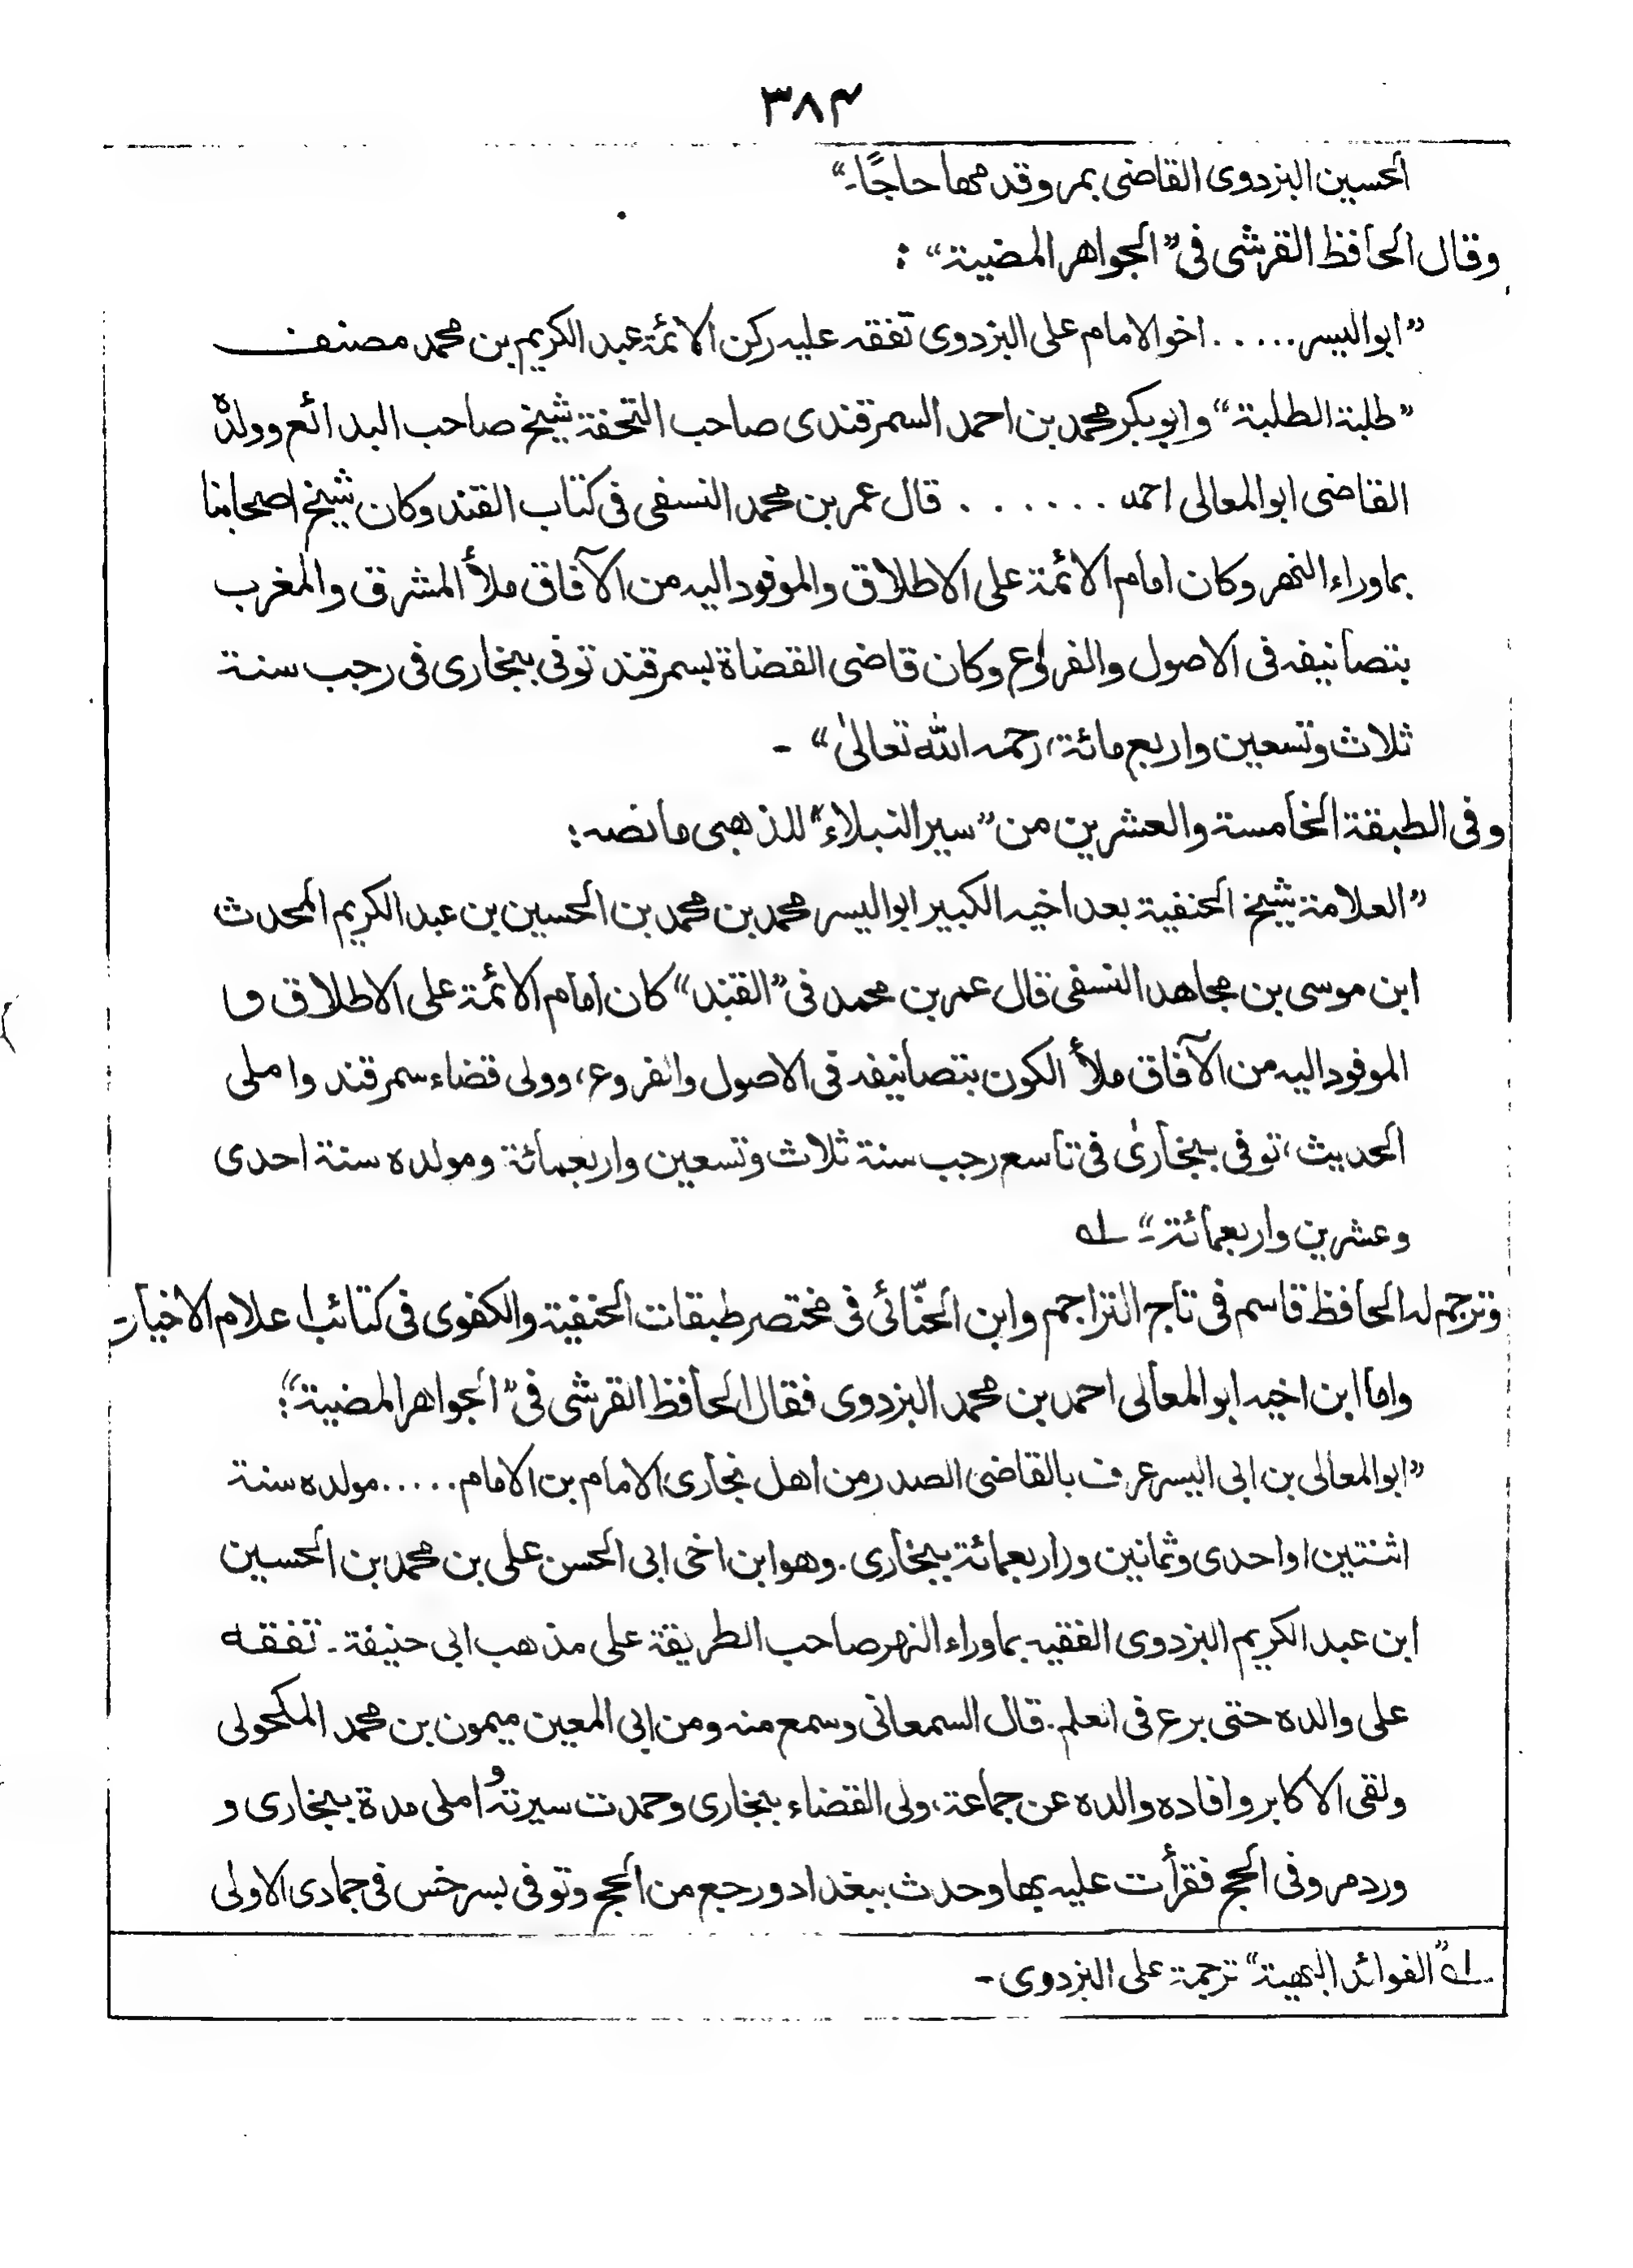 ۳۸۴
الحسين البزدوى القاضى بمرو قدمها حاجًا۔“
وقال الحافظ القرشى فى ”الجواهر المضية“ :
”ابواليسر..... اخو الامام على البزدوى تفقه عليه ركن الائمة عبد الكريم بن محمد مصنف
”طلبة الطلبة“ وابوبكر محمد بن احمد السمرقندى صاحب التحفة شيخ صاحب البدائع وولدهٗ
القاضى ابوالمعالى احمد ....... قال عمر بن محمد النسفى فى كتاب القند وكان شيخ اصحابنا
بماوراء النهر وكان امام الائمة على الاطلاق والموفود اليه من الآفاق ملأ المشرق والمغرب
بتصانيفه فى الاصول والفروع وكان قاضى القضاة بسمرقند توفى ببخارى فى رجب سنة
ثلاث وتسعين واربع مائة، رحمه الله تعالىٰ“ ۔
وفى الطبقة الخامسة والعشرين من ”سير النبلاء“ للذهبى ما نصه:
”العلامة شيخ الحنفية بعد اخيه الكبير ابواليسر محمد بن محمد بن الحسين بن عبد الكريم المحدث
ابن موسى بن مجاهد النسفى قال عمر بن محمد فى ”القند“ كان امام الائمة على الاطلاق و
الموفود اليه من الآفاق ملأ الكون بتصانيفه فى الاصول والفروع، وولى قضاء سمرقند واملى
الحديث، توفى ببخارىٰ فى تاسع رجب سنة ثلاث وتسعين واربعمائة ومولده سنة احدى
وعشرين واربعمائة۔“ ـلـه
وترجم له الحافظ قاسم فى تاج التراجم وابن الحنّائى فى مختصر طبقات الحنفية والكفوى فى كتائب اعلام الاخيار
واما ابن اخيه ابو المعالى احمد بن محمد البزدوى فقال الحافظ القرشى فى ”الجواهر المضية“:
”ابوالمعالى بن ابى اليسر عرف بالقاضى الصدر من اهل بخارى الامام بن الامام ..... مولده سنة
اثنتين او احدى وثمانين واربعمائة ببخارى. وهو ابن اخى ابى الحسن على بن محمد بن الحسين
ابن عبد الكريم البزدوى الفقيه بماوراء النهر صاحب الطريقة على مذهب ابى حنيفة۔ تفقه
على والده حتى برع فى العلم. قال السمعانى وسمع منه ومن ابى المعين ميمون بن محمد المكحولى
ولقى الاكابر وافاده والده عن جماعة، ولى القضاء ببخارى وحمدت سيرتهٗ املى مدة ببخارى و
ورد مرو فى الحج فقرأت عليه بها وحدث ببغداد ورجع من الحج وتوفى بسرخس فى جمادى الاولى
ـلـه ”الفوائد البهية“ ترجمة على البزدوى۔